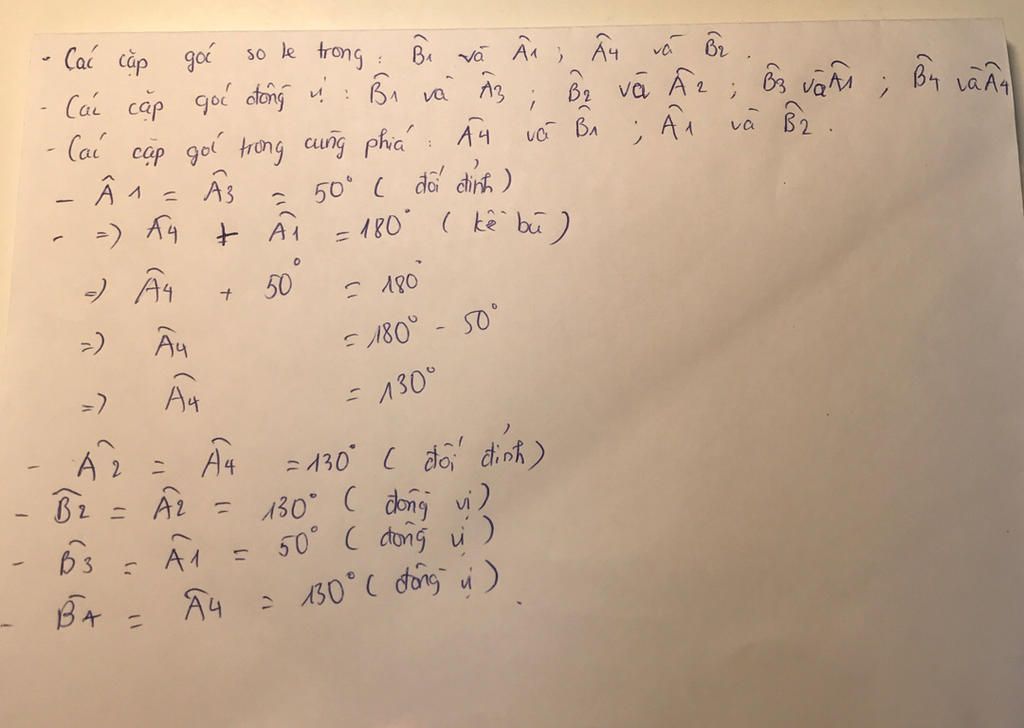 - Các cặp góc so le trong : B̂1 và Â1 ; Â4 và B̂2 .
- Các cặp góc đồng vị : B̂1 và Â3 ; B̂2 và Â2 ; B̂3 và Â1 ; B̂4 và Â4
- Các cặp góc trong cùng phía : Â4 và B̂1 ; Â1 và B̂2 .
- Â1 = Â3 = 50° ( đối đỉnh )
- => Â4 + Â1 = 180° ( kề bù )
=> Â4 + 50° = 180°
=> Â4 = 180° - 50°
=> Â4 = 130°
- Â2 = Â4 = 130° ( đối đỉnh )
- B̂2 = Â2 = 130° ( đồng vị )
- B̂3 = Â1 = 50° ( đồng vị )
- B̂4 = Â4 = 130° ( đồng vị ) .